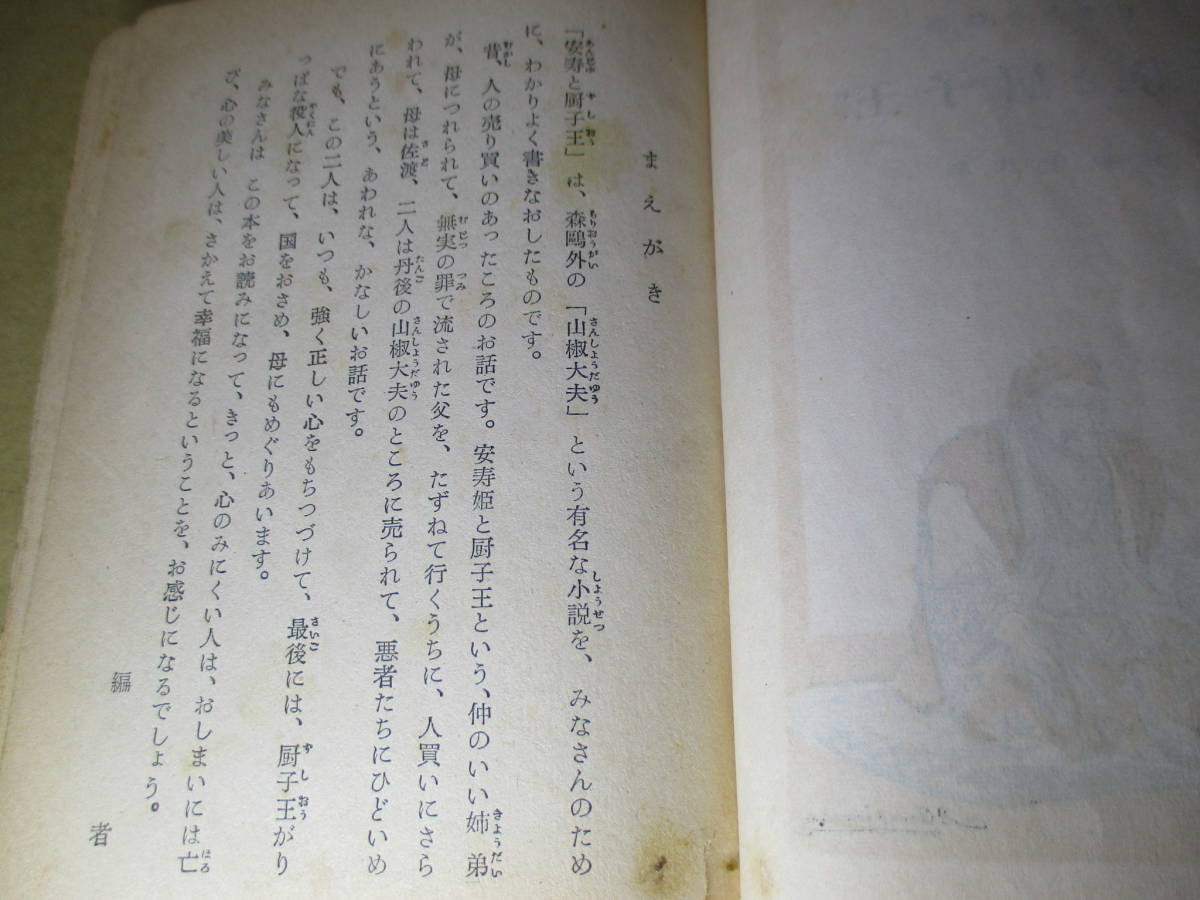 まえがき
「安寿と厨子王」は、森鷗外の「山椒大夫」という有名な小説を、みなさんのため
に、わかりよく書きなおしたものです。
昔、人の売り買いのあったころのお話です。安寿姫と厨子王という、仲のいい姉弟
が、母につれられて、無実の罪で流された父を、たずねて行くうちに、人買いにさら
われて、母は佐渡、二人は丹後の山椒大夫のところに売られて、悪者たちにひどいめ
にあうという、あわれな、かなしいお話です。
でも、この二人は、いつも、強く正しい心をもちつづけて、最後には、厨子王がり
っぱな役人になって、国をおさめ、母にもめぐりあいます。
みなさんは この本をお読みになって、きっと、心のみにくい人は、おしまいには亡
び、心の美しい人は、さかえて幸福になるということを、お感じになるでしょう。
編者